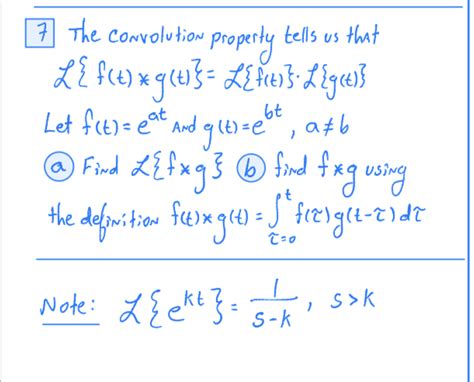 7 The convolution property tells us that
ℒ{f(t)*g(t)} = ℒ{f(t)}·ℒ{g(t)}
Let f(t)=e^{at} AND g(t)=e^{bt}, a≠b
(a) Find ℒ{f*g} (b) find f*g using
the definition f(t)*g(t) = ∫_{τ=0}^{t} f(τ)g(t-τ)dτ
Note: ℒ{e^{kt}} = 1/(s-k), s>k